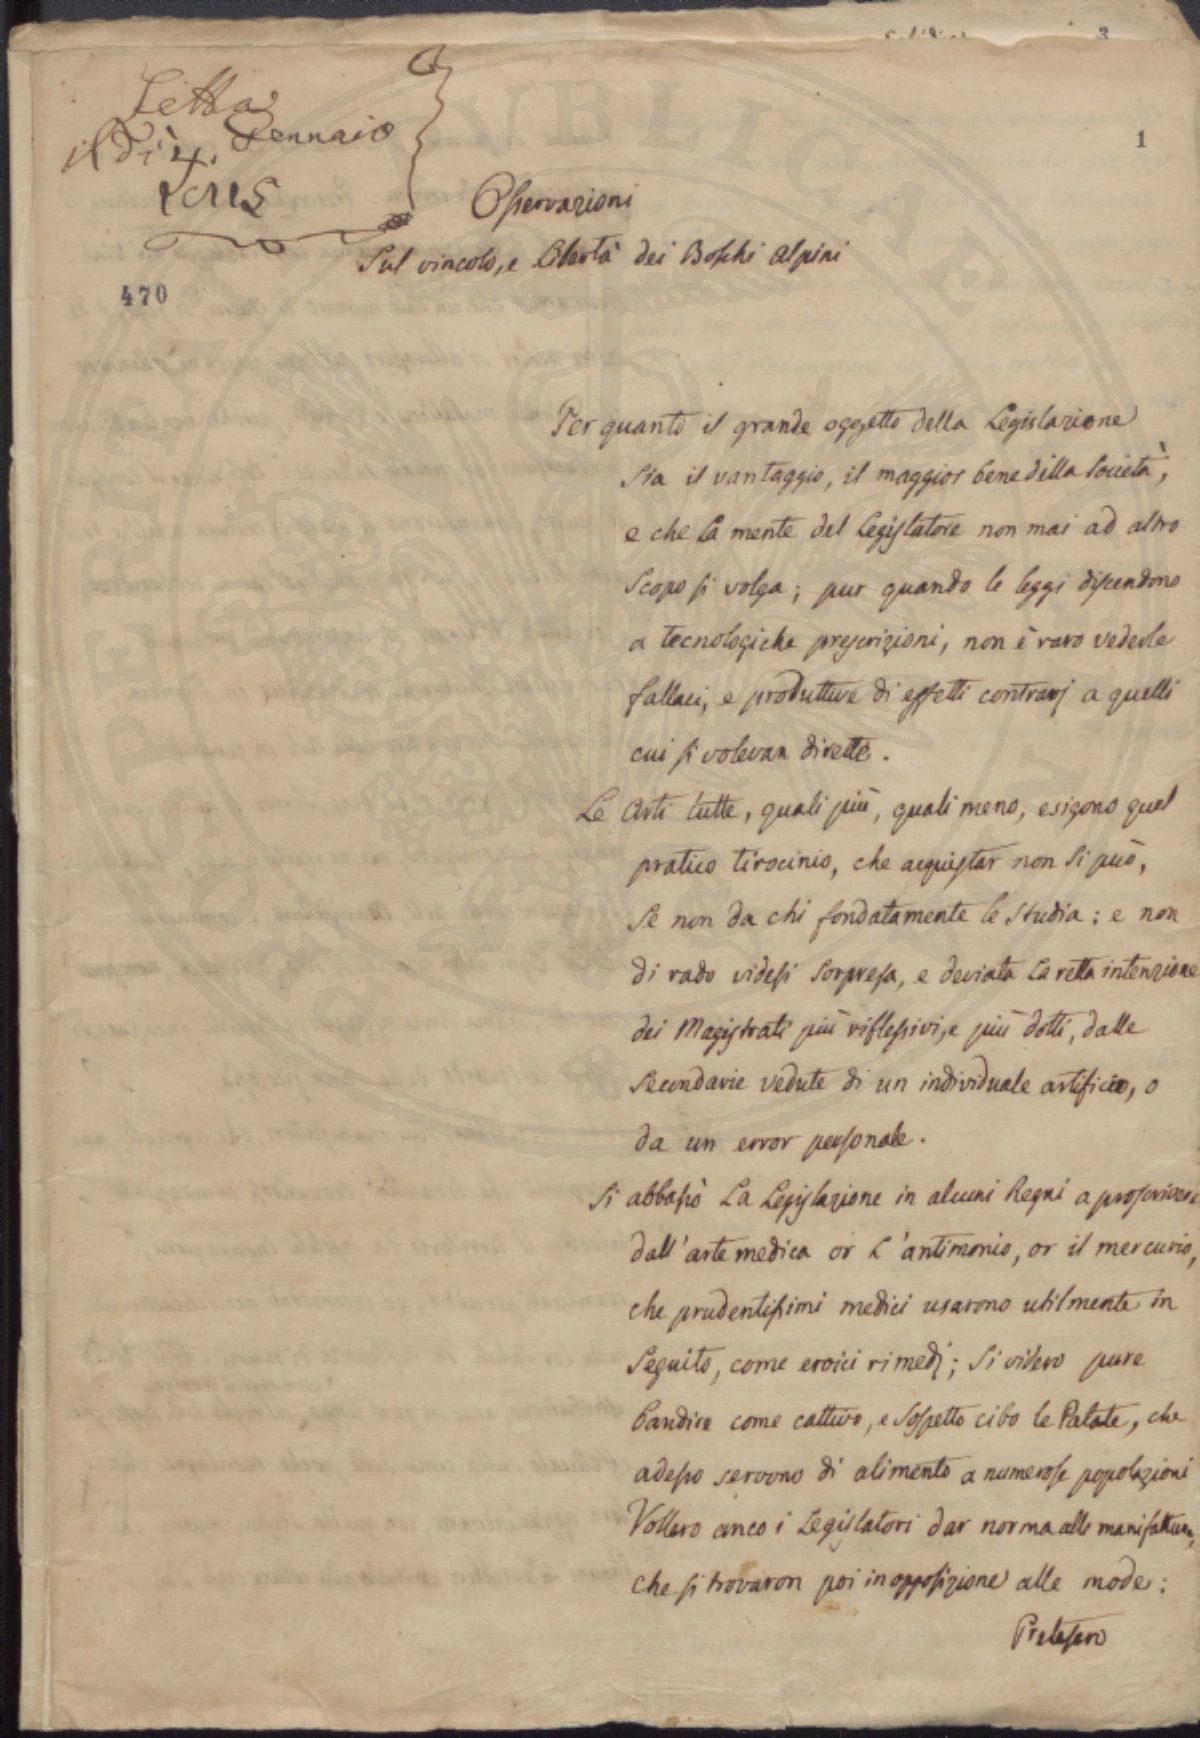 3
1
Letta
il dì 4. Gennaio
Osservazioni
Sul vincolo, e Libertà dei Boschi Alpini
470
Per quanto il grande oggetto della Legislazione
sia il vantaggio, il maggior bene della Società,
e che la mente del Legislatore non mai ad altro
scopo si volga; pur quando le leggi discendono
a tecnologiche prescrizioni, non è raro vederle
fallaci, e produttive di effetti contrarj a quelli
cui si volevan dirette.
Le Arti tutte, quali più, quali meno, esigono quel
pratico tirocinio, che acquistar non si può,
se non da chi fondatamente le studia: e non
di rado videsi sorpresa, e deviata la retta intenzione
dei Magistrati più riflessivi, e più dotti, dalle
secondarie vedute di un individuale artificio, o
da un error personale.
Si abbassò La Legislazione in alcuni Regni a proscrivere
dall'arte medica or l'antimonio, or il mercurio,
che prudentissimi medici usarono utilmente in
seguito, come eroici rimedj; Si videro pure
bandire come cattivo, e sospetto cibo le Patate, che
adesso servono di alimento a numerose popolazioni
Vollero anco i Legislatori dar norma alle manifatture,
che si trovaron poi in opposizione alle mode:
Pretesero